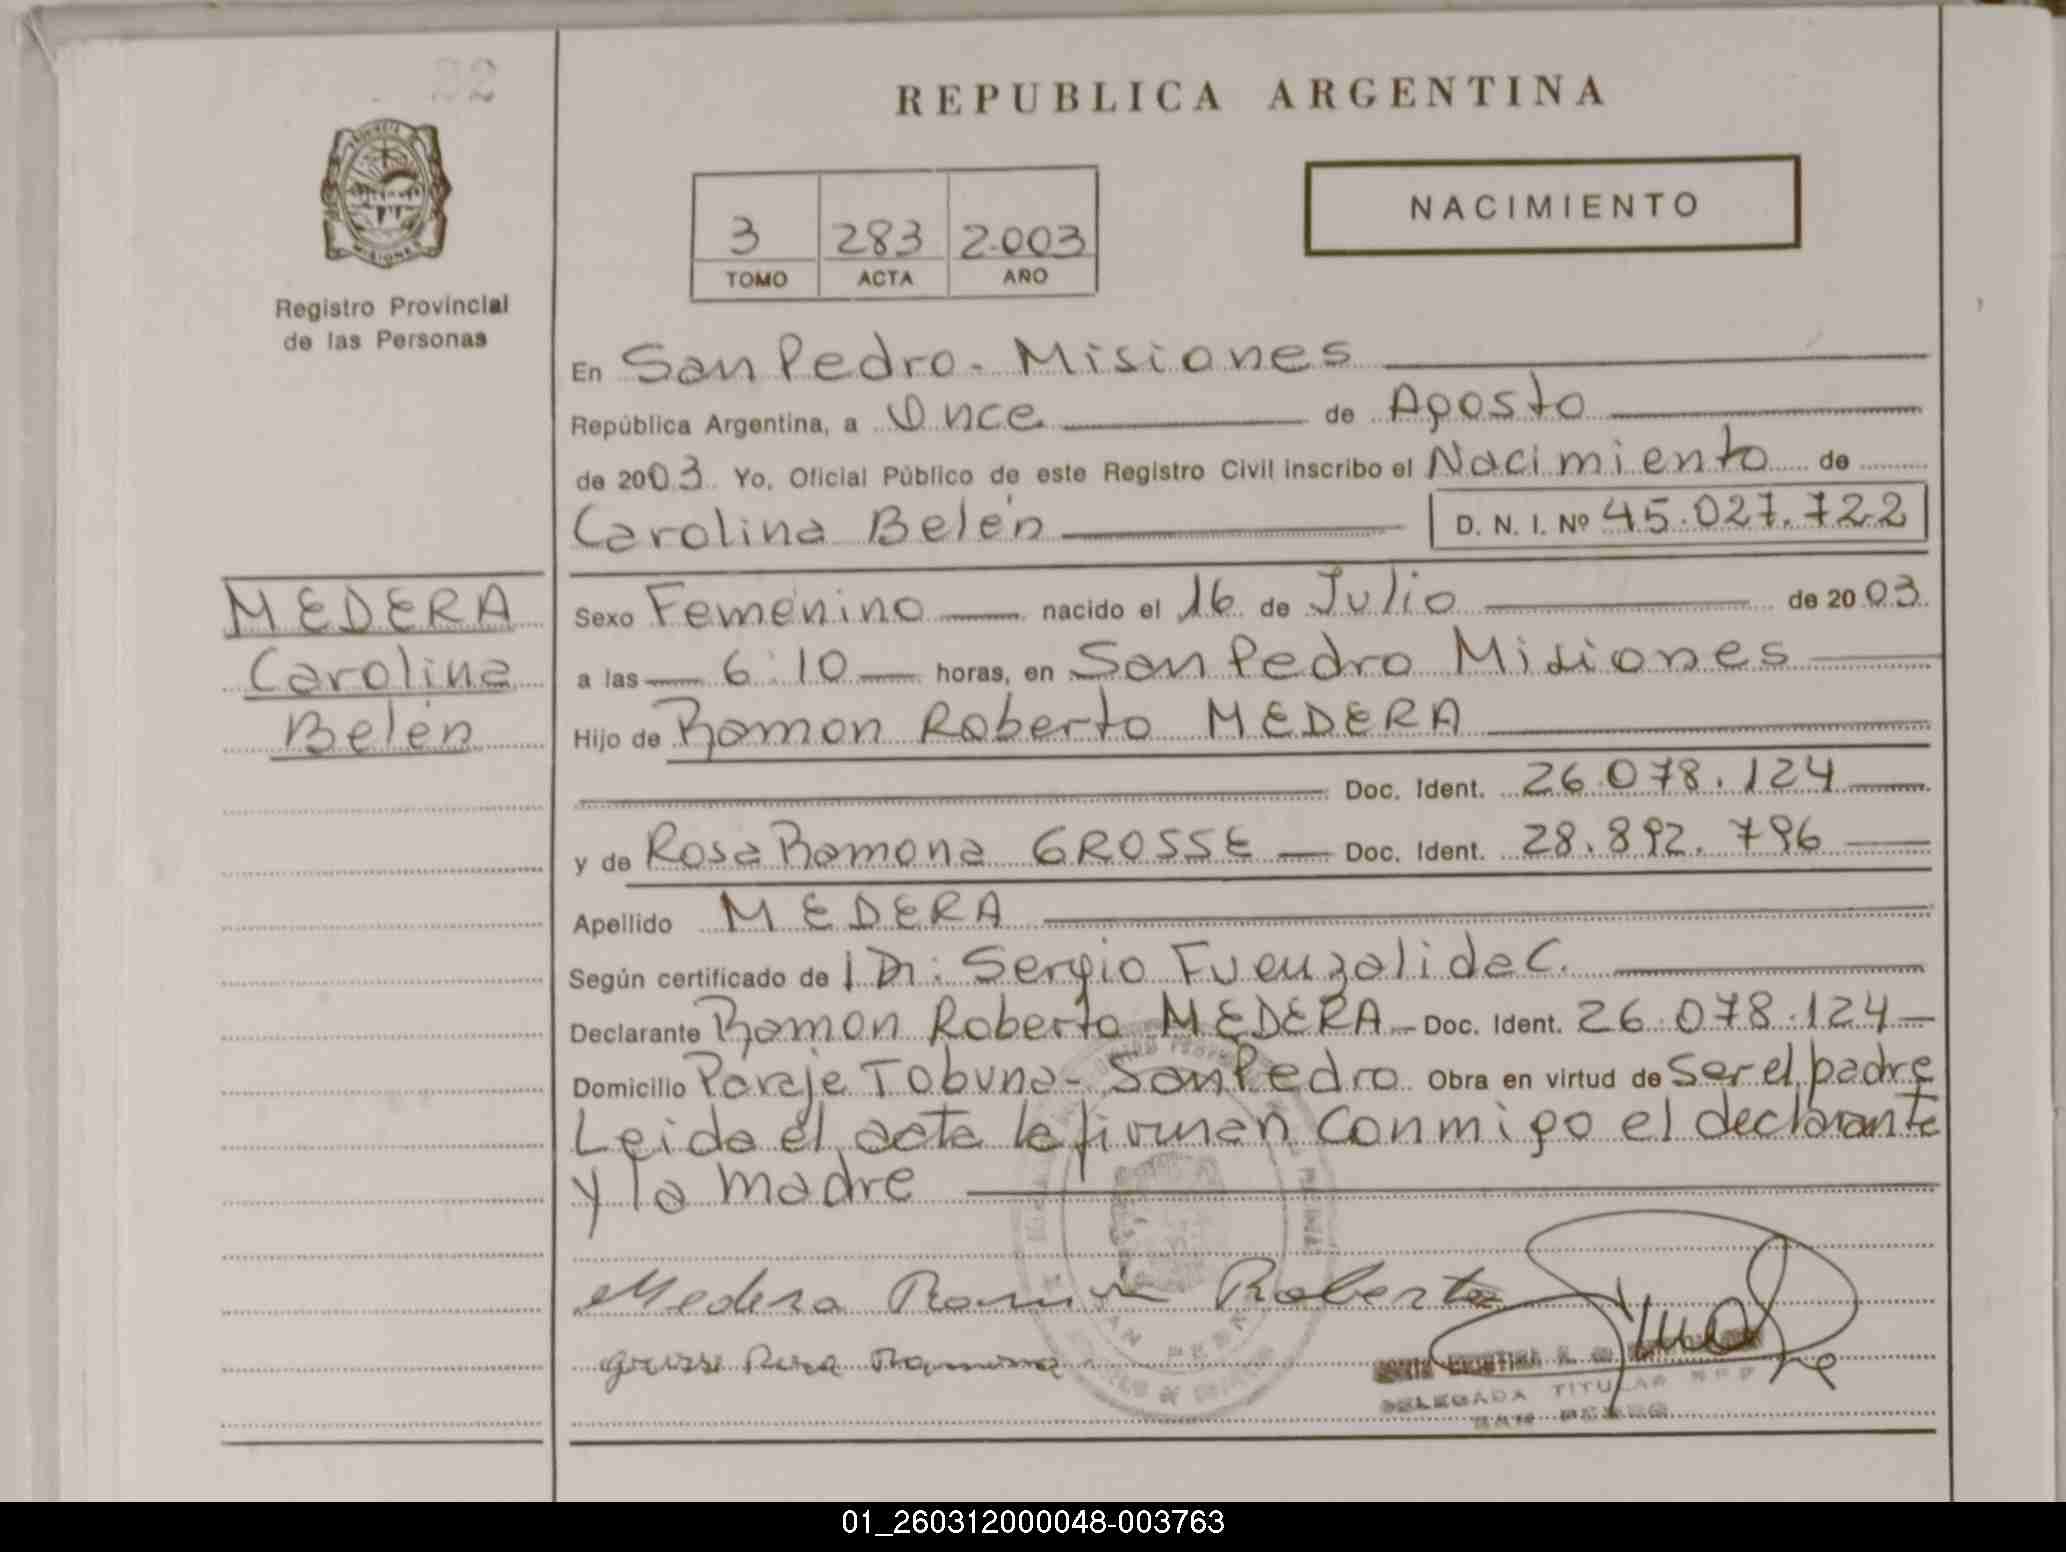 32
REPUBLICA ARGENTINA
NACIMIENTO
3 283 2.003
TOMO ACTA AÑO
Registro Provincial
de las Personas
En San Pedro - Misiones
República Argentina, a Once de Agosto
de 2003. Yo, Oficial Público de este Registro Civil inscribo el Nacimiento de
Carolina Belén D. N. I. Nº 45.027.722
MEDERA
Carolina
Belén
Sexo Femenino nacido el 16 de Julio de 2003.
a las 6:10 horas, en San Pedro Misiones
Hijo de Ramon Roberto MEDERA
Doc. Ident. 26.078.124
y de Rosa Ramona GROSSE Doc. Ident. 28.892.796
Apellido MEDERA
Según certificado de Dr: Sergio Fuenzalida C.
Declarante Ramon Roberto MEDERA Doc. Ident. 26.078.124
Domicilio Paraje Tobuna - San Pedro Obra en virtud de ser el padre
Leida el acta la firman conmigo el declarante
y la madre
Medera Ramón Roberto
Rosa Ramona
DELEGADA TITULAR RPP
SAN PEDRO
01_260312000048-003763